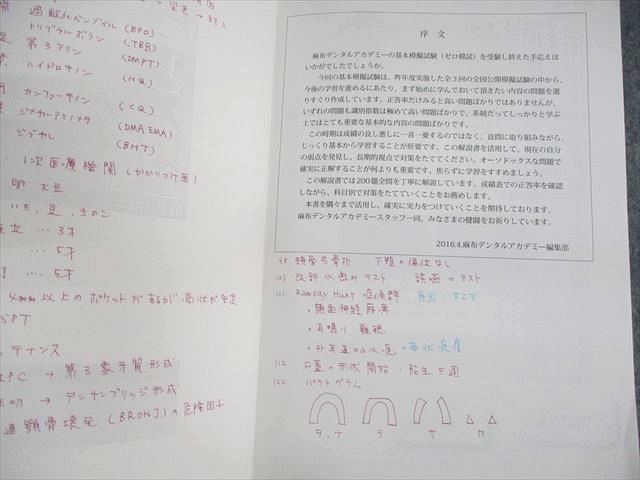 開 過酸化ベンゾイル (BPO)
トリブチルボラン (TBB)
第3アミン (DMPT)
ハイドロキノン (HQ)
カンファーキノン (CQ)
ジメカルアミノメタ (DMAEMA)
ジブカル (BHT)
1次医療機関 (かかりつけ医)
卵 大豆
いも、豆、きのこ
立 … 3才
… 5才
… 5才
4mm以上のポケットがあるが、病状が安定
SPT
テナンス
IPC → 第3象牙質形成
生切 → デンチンブリッジ形成
連 顎骨壊死 (BRONJ) の危険因子
序 文
麻布デンタルアカデミーの基本模擬試験(ゼロ模試)を受験し終えた手応えは
いかがでしたでしょうか。
今回の基本模擬試験は、昨年度実施した全3回の全国公開模擬試験の中から、
今後の学習を進めるにあたり、まず始めに学んでおいて頂きたい内容の問題を選
りすぐり作成しています。正答率だけみると高い問題ばかりではありませんが、
いずれの問題も識別指数は極めて高い問題ばかりで、系統だってしっかりと学ぶ
上ではとても重要な基本的な内容の問題ばかりです。
この時期は成績の良し悪しに一喜一憂するのではなく、良問に取り組みながら、
じっくり基本から学習することが肝要です。この解説書を活用して、現在の自分
の弱点を発見し、長期的視点で対策をたててください。オーソドックスな問題で
確実に正解することが何よりも重要です。焦らずに学習をすすめましょう。
この解説書では200題全問を丁寧に解説しています。成績表での正答率を確認
しながら、科目別で対策をたてていくことをお薦めします。
本書を隅々まで活用し、確実に実力をつけていくことを期待しております。
麻布デンタルアカデミースタッフ一同、みなさまの健闘をお祈りしています。
2016.4.麻布デンタルアカデミー編集部
98 頬骨弓骨折 : 下顎の偏位なし
103 改訂水飲みテスト : 誤嚥のテスト
111 Ramsay Hunt 症候群 原因: VZV
・顔面神経麻痺
・耳鳴り 難聴
・外耳道の小水疱 → 帯状疱疹
112 口蓋の形成開始 : 胎生5週
122 パラトグラム
タ、ナ ラ サ カ